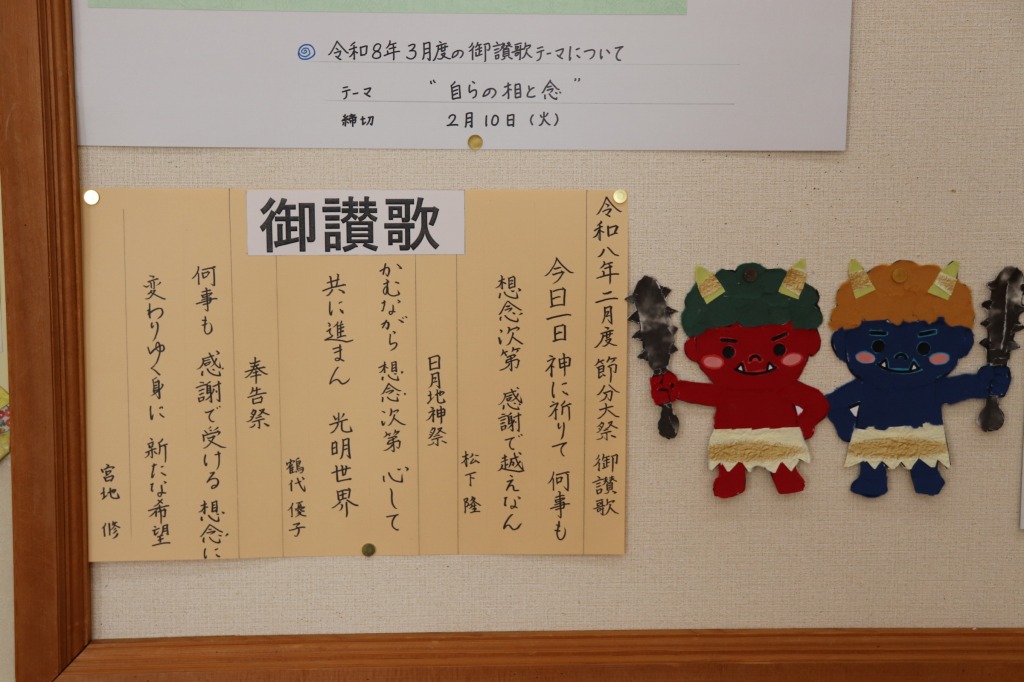 令和8年3月度の御讃歌テーマについて
テーマ “自らの相と念”
締切 2月10日(火)
御讃歌
令和八年二月度 節分大祭 御讃歌
今日一日 神に祈りて 何事も
想念次第 感謝で越えなん
松下 隆
日月地神祭
かむながら 想念次第 心して
共に進まん 光明世界
鶴代 優子
奉告祭
何事も 感謝で受ける 想念に
変わりゆく身に 新たな希望
宮地 修